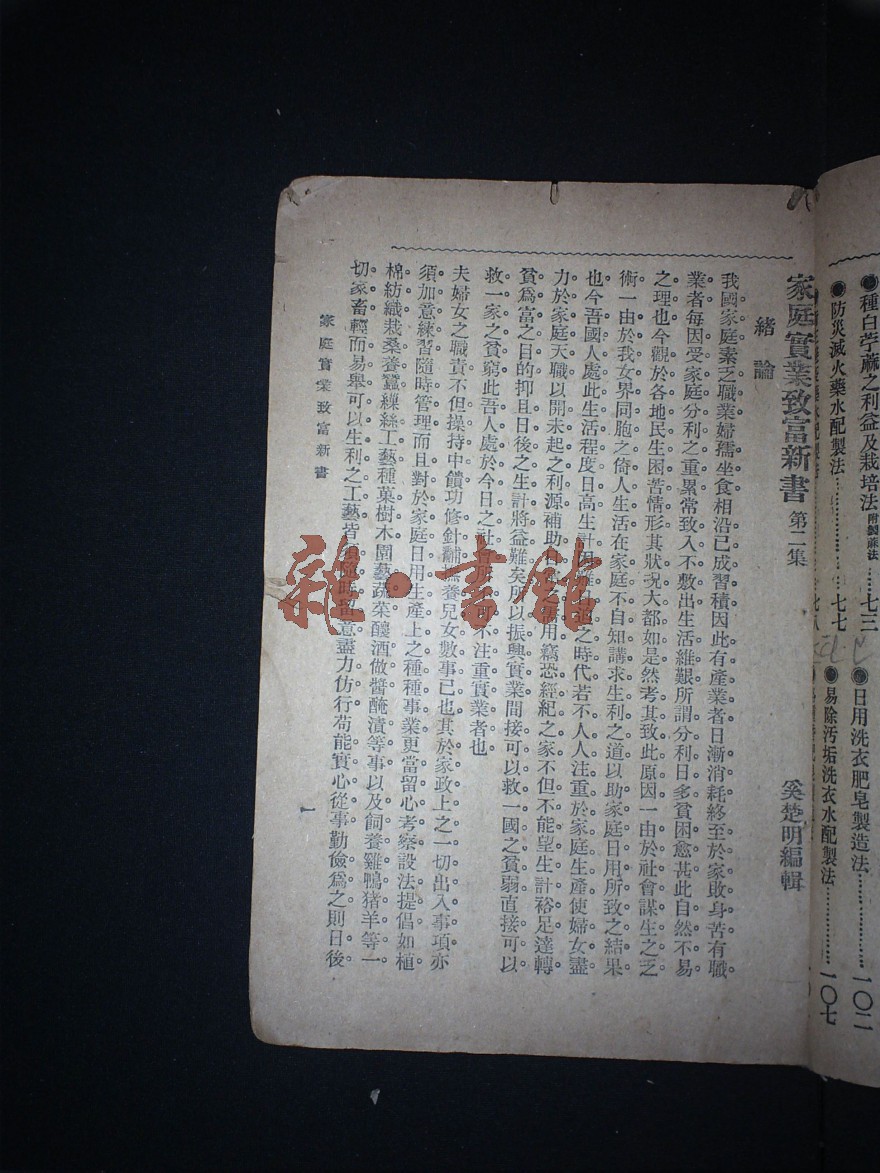 ●種白苧蔴之利益及栽培法附製蔴法……七三
●日用洗衣肥皂製造法……………一〇二
●防災滅火藥水配製法……………七七
●易除汚垢洗衣水配製法……………一〇七
家庭實業致富新書 第二集
奚楚明編輯
緒論
我國家庭素乏職業婦孺坐食相沿已成習積因此有產業者日漸消耗終至於家敗身苦有職
業者每因受家庭分利之重累常致入不敷出生活維艱所謂分利日多貧困愈甚此自然不易
之理也今觀於各地民生困苦情形其狀況大都如是然考其致此原因一由於社會謀生之乏
術一由於我女界同胞之倚人生活在家庭不自知講求生利之道以助家庭日用所致之結果
也今吾國人處此生活程度日高生計之時代若不人人注重於家庭生產使婦女盡
力於家庭天職以開未起之利源補助日用竊恐經紀之家不但不能望生計裕足達轉
貧爲富之目的抑且日後之生計將益難矣所以振興實業間接可以救一國之貧弱直接可以
救一家之貧窮此吾人處於今日之社會所不可不注重實業者也
夫婦女之職責不但操持中饋功修針黹撫養兒女數事已也其於家政上之一切出入事項亦
須加意練習隨時管理而且對於家庭日用生產上之種種事業更當留心考察設法提倡如植
棉紡織栽桑養蠶繅絲工藝種菓樹木園藝蔬菜釀酒做醬醃漬等事以及飼養雞鴨猪羊等一
切家畜輕而易舉可以生利之工藝皆須隨時留意盡力仿行苟能實心從事勤儉爲之則日後
家庭實業致富新書
一
雜·書館